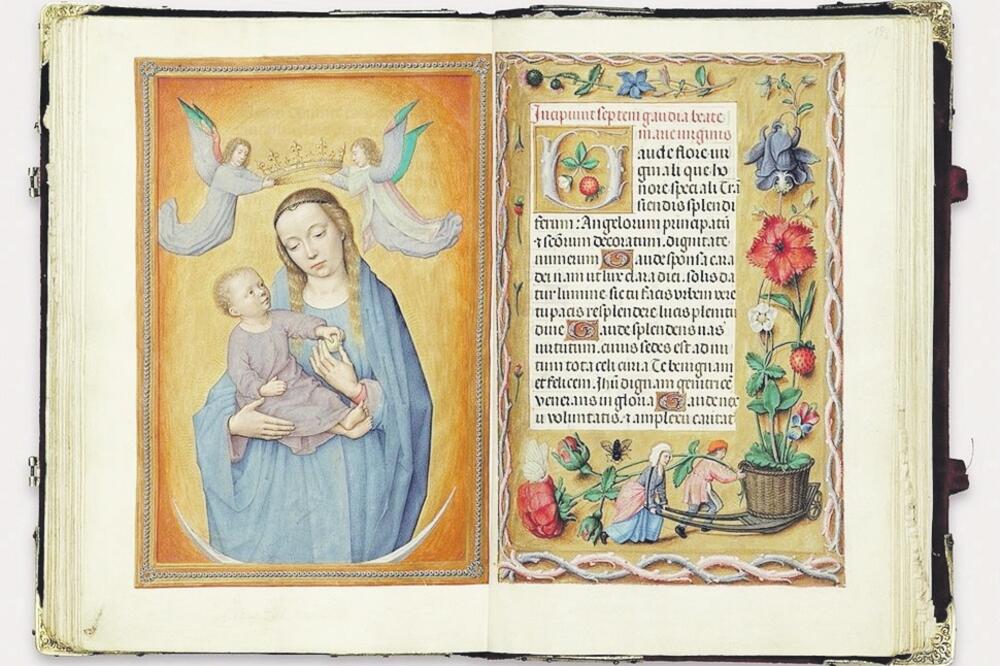 Incipiunt septem gaudia beate
marie virginis
Gaude flore vir
ginali que ho
nore speciali Trã
sciendis splendi
ferum : Angelorum principatũ
& scõrum decoratum . dignitate
numerum Gaude sponsa cara
dei nam ut lux clara diei . solis da
tur lumine sic tu facis orbem vere
tu pacis resplendere lucis plenitu
dine Gaude splendens vas
virtutum . cuius sedes est ad nu
tum tota celi curia Te benignam
et felicem . Jhũ dignam genitricẽ
venerans in gloria Gaude nex
u voluntatis . & amplexu caritat